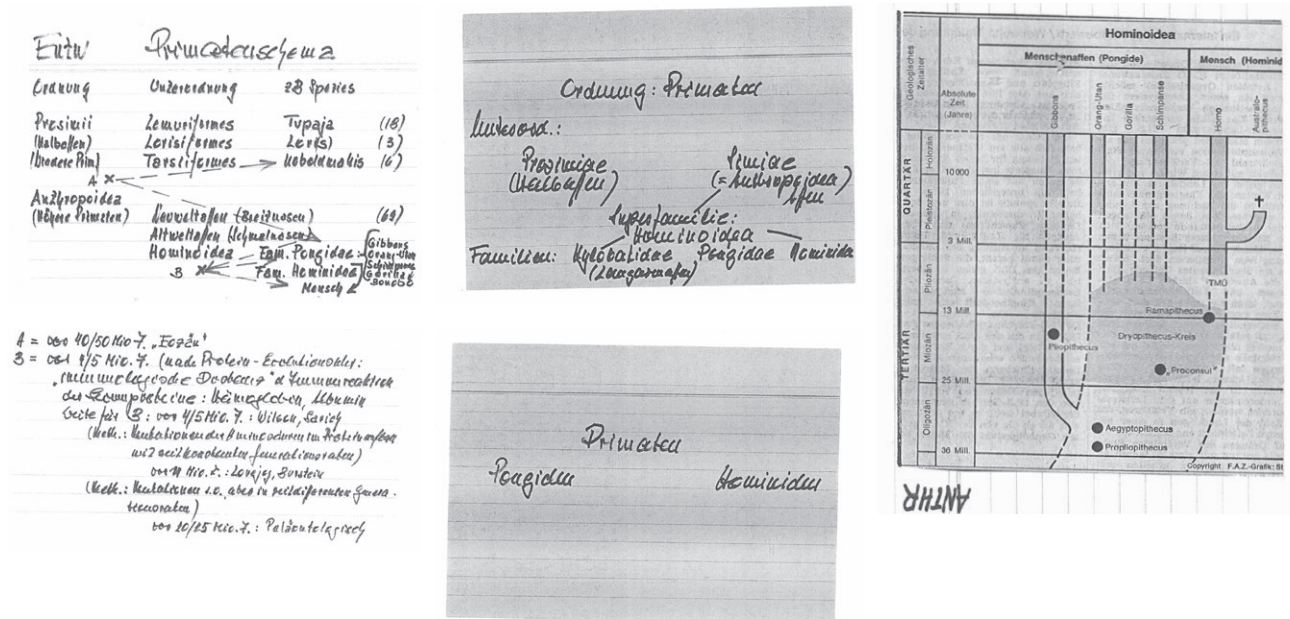 Entw Primatenschema
Ordnung Unterordnung zB Species
Prosimii Lemuriformes Tupaja (18)
(Halbaffen) Lorisiformes Loris) (3)
(niedere Prim) Tarsiiformes Koboldmakis (6)
A
Anthropoidea
(Höhere Primaten) Neuweltaffen (Breitnasen) (69)
Altweltaffen (Schmalnasen)
Hominoidea Fam. Pongidae: Gibbons
Orang-Utan
Schimpanse
B Fam. Hominidea Gorilla
Mensch Bonobo
A = vor 40/50 Mio J. „Eozän"
B = vor 4/5 Mio. J. (nach Protein-Evolutionsuhr:
„immunologische Distanz" d Immunreaktion
der Serumproteine: Hämoglobin, Albumin
Seite für B: vor 4/5 Mio. J.: Wilson, Sarich
(Meth.: Mutationen der Aminosäuren im Protein
mit zeitkonstanten Generationsraten)
vor Mio. J.: Lovejoy, Burstein
(Meth.: Mutationen s.o., aber in zeitdifferenten Genera-
tionsraten)
vor 20/25 Mio. J.: Paläontologisch
Ordnung: Primaten
Unterord.:
Prosimiae Simiae
(Halbaffen) (= Anthropoidea)
Affen
Superfamilie:
Hominoidea
Familien: Hylobatidae Pongidae Hominidae
(Langarmaffen)
Primaten
Pongiden Hominiden
Hominoidea
Menschenaffen (Pongide) Mensch (Hominid
Geologisches
Zeitalter
Absolute
Zeit
(Jahre)
Gibbons
Orang-Utan
Gorilla
Schimpanse
Homo
Australo-
pithecus
QUARTÄR
Holozän
10000
Pleistozän
3 Mill.
TERTIÄR
Pliozän
TMÜ
13 Mill.
Ramapithecus
Miozän
Pliopithecus
Dryopithecus-Kreis
„Proconsul"
25 Mill.
Oligozän
Aegyptopithecus
Propliopithecus
36 Mill.
Copyright F.A.Z.-Grafik: St
ANTHR